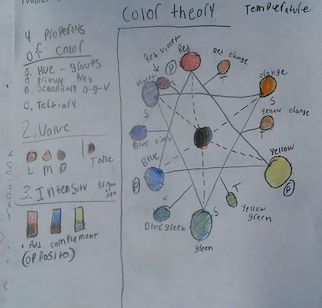 4 Properties
of color
1. Hue - groups
A. Primary R.Y.B
B. Secondary O-g-V
C. Tertiary
2. Value
L M D
Tone
3. Intensity
Add complement
(opposite)
Color theory
Temperature
Red
Red violet
Red orange
Violet
P
T
orange
S
S
Yellow orange
T
Blue violet
Yellow
Blue
P
P
T
Yellow
green
T
Blue green
S
green